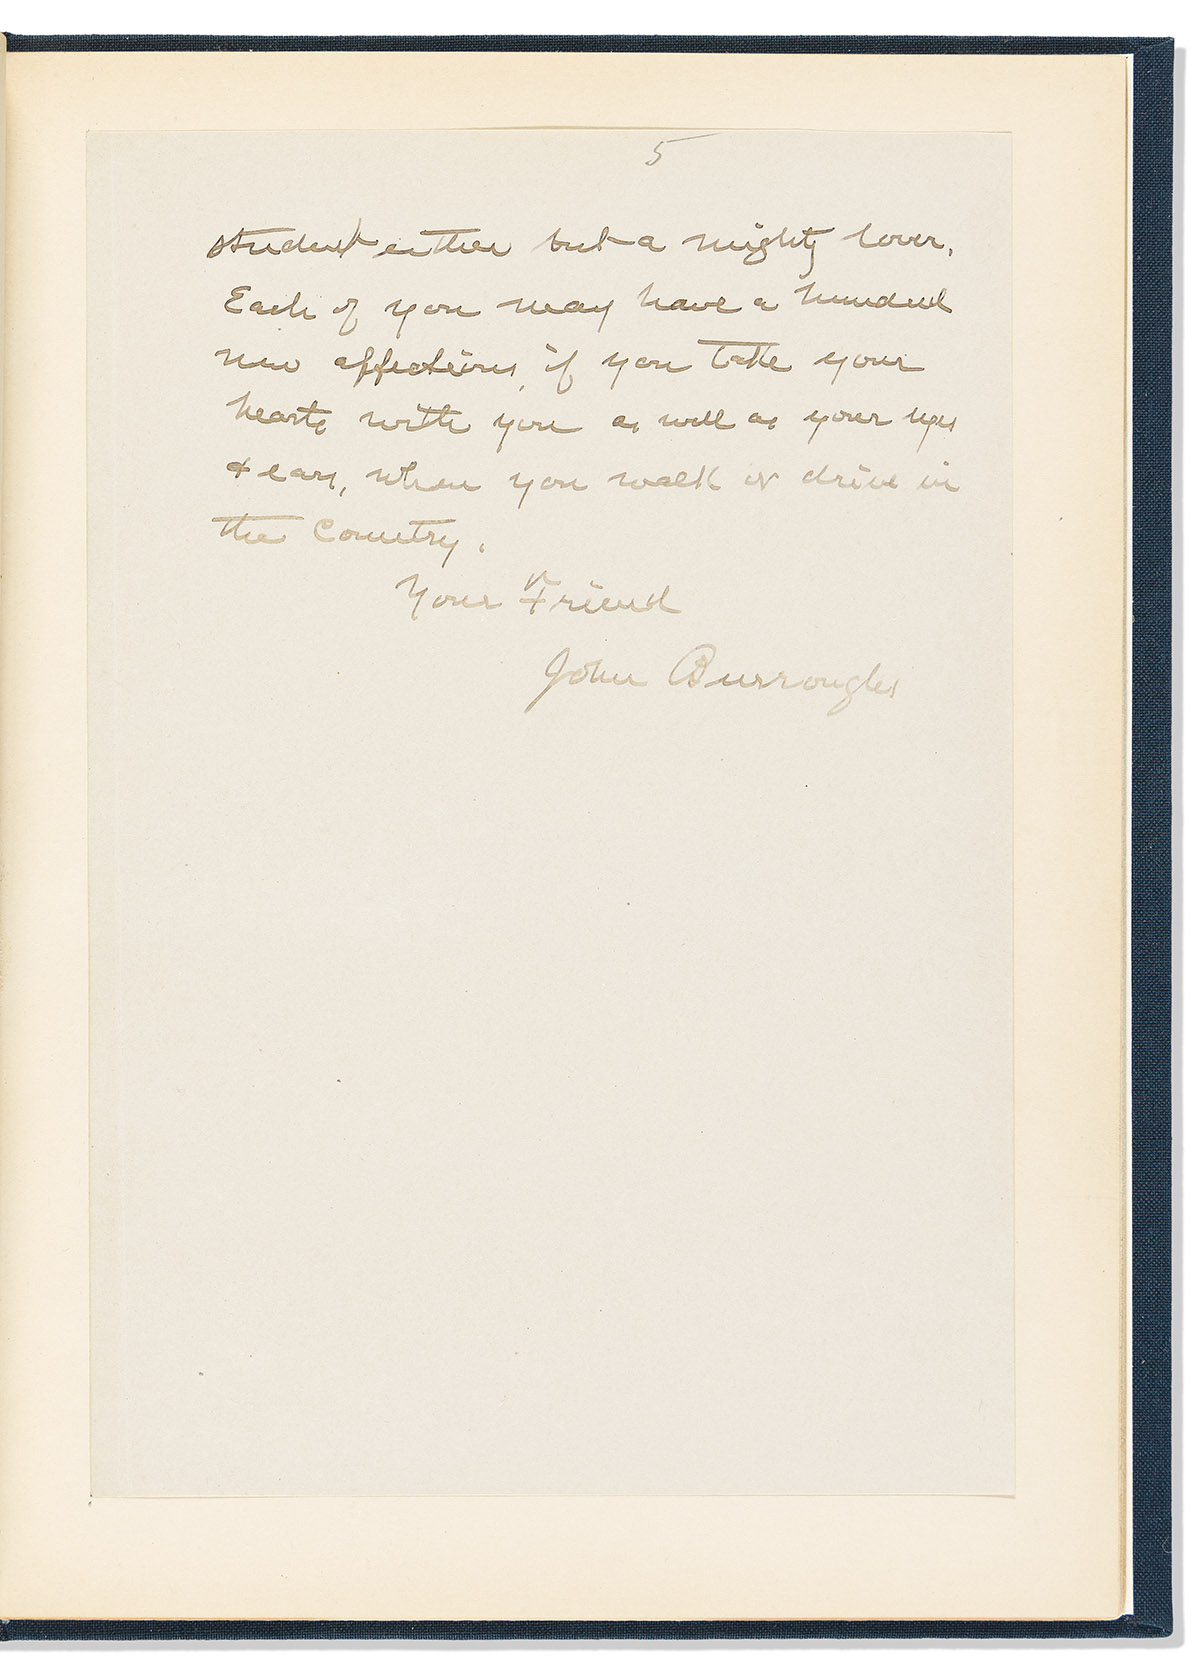 5
student either but a mighty lover.
Each of you may have a hundred
new affections, if you take your
hearts with you as well as your eyes
& ears, when you walk or drive in
the Country.
Your Friend
John Burroughs